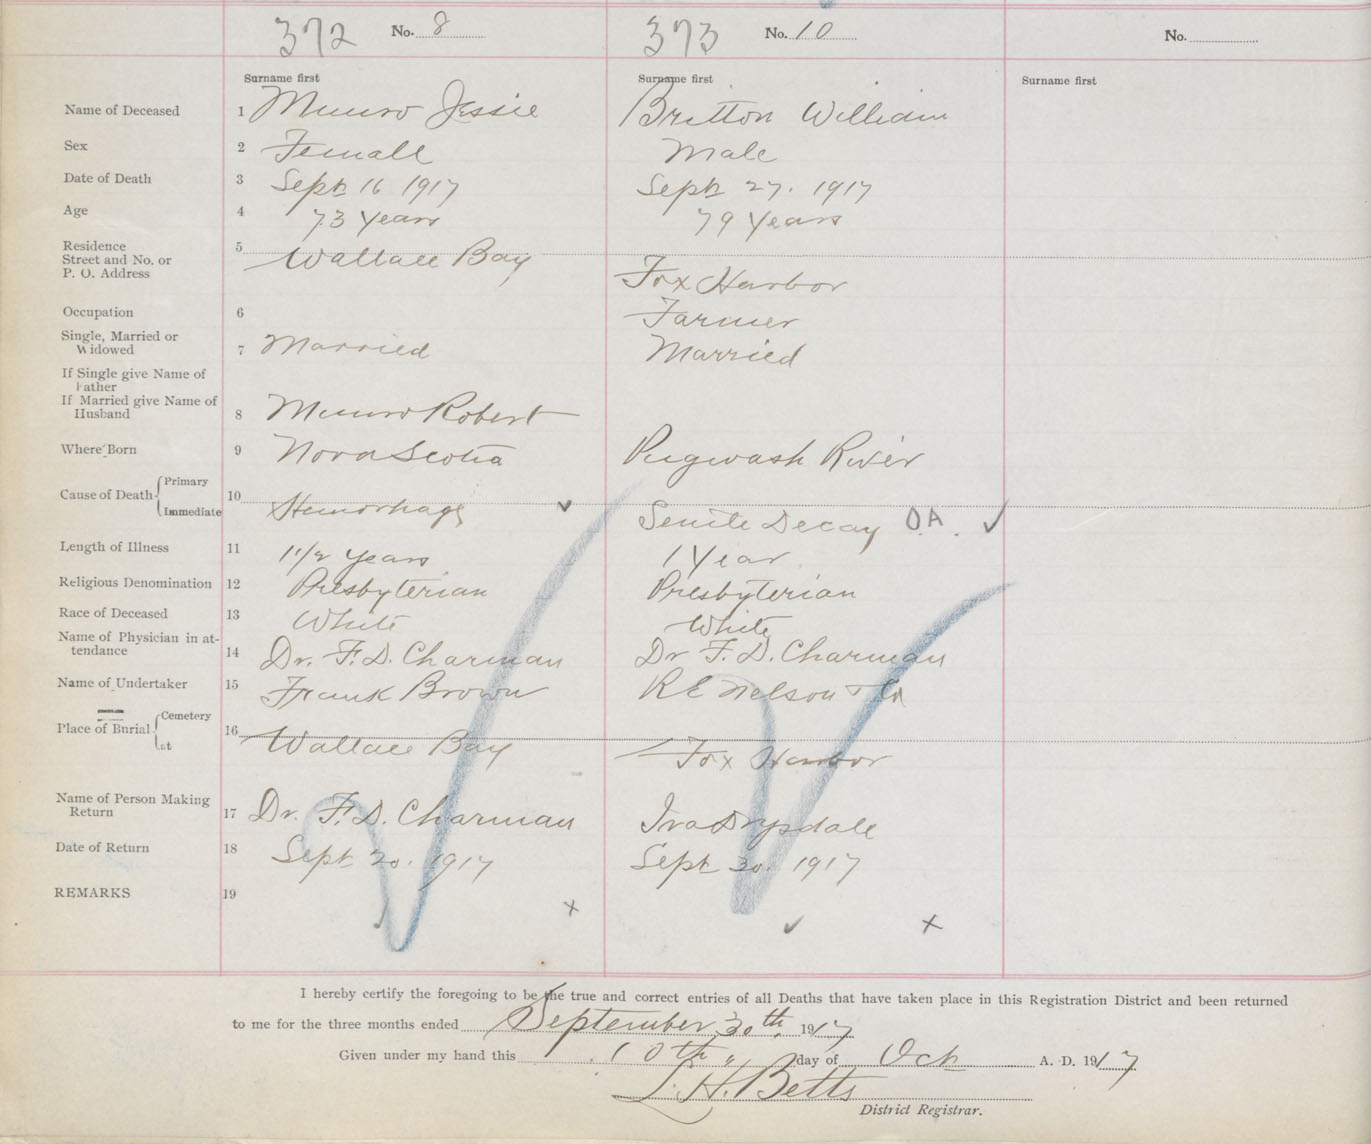 372 No. 8 373 No. 10 No.
Surname first Surname first Surname first
Name of Deceased 1 Munro Jessie Britton William
Sex 2 Female Male
Date of Death 3 Sept 16 1917 Sept 27. 1917
Age 4 73 Years 79 Years
Residence 5
Street and No. or Wallace Bay
P. O. Address Fox Harbor
Occupation 6 Farmer
Single, Married or
Widowed 7 Married Married
If Single give Name of
Father
If Married give Name of
Husband 8 Munro Robert
Where Born 9 Nova Scotia Pugwash River
Cause of Death Primary 10
Immediate Hemorhage Senile Decay O.A.
Length of Illness 11 1 1/2 years 1 Year
Religious Denomination 12 Presbyterian Presbyterian
Race of Deceased 13 White White
Name of Physician in at-
tendance 14 Dr. F. D. Charman Dr F. D. Charman
Name of Undertaker 15 Frank Brown R E Nelson & Co
Place of Burial Cemetery 16
at Wallace Bay Fox Harbor
Name of Person Making
Return 17 Dr. F. D. Charman Ira Drysdale
Date of Return 18 Sept 20. 1917 Sept 30. 1917
REMARKS 19
x x
I hereby certify the foregoing to be the true and correct entries of all Deaths that have taken place in this Registration District and been returned
to me for the three months ended September 30th 1917
Given under my hand this 10th day of Oct A. D. 1917
L. H. Betts
District Registrar.